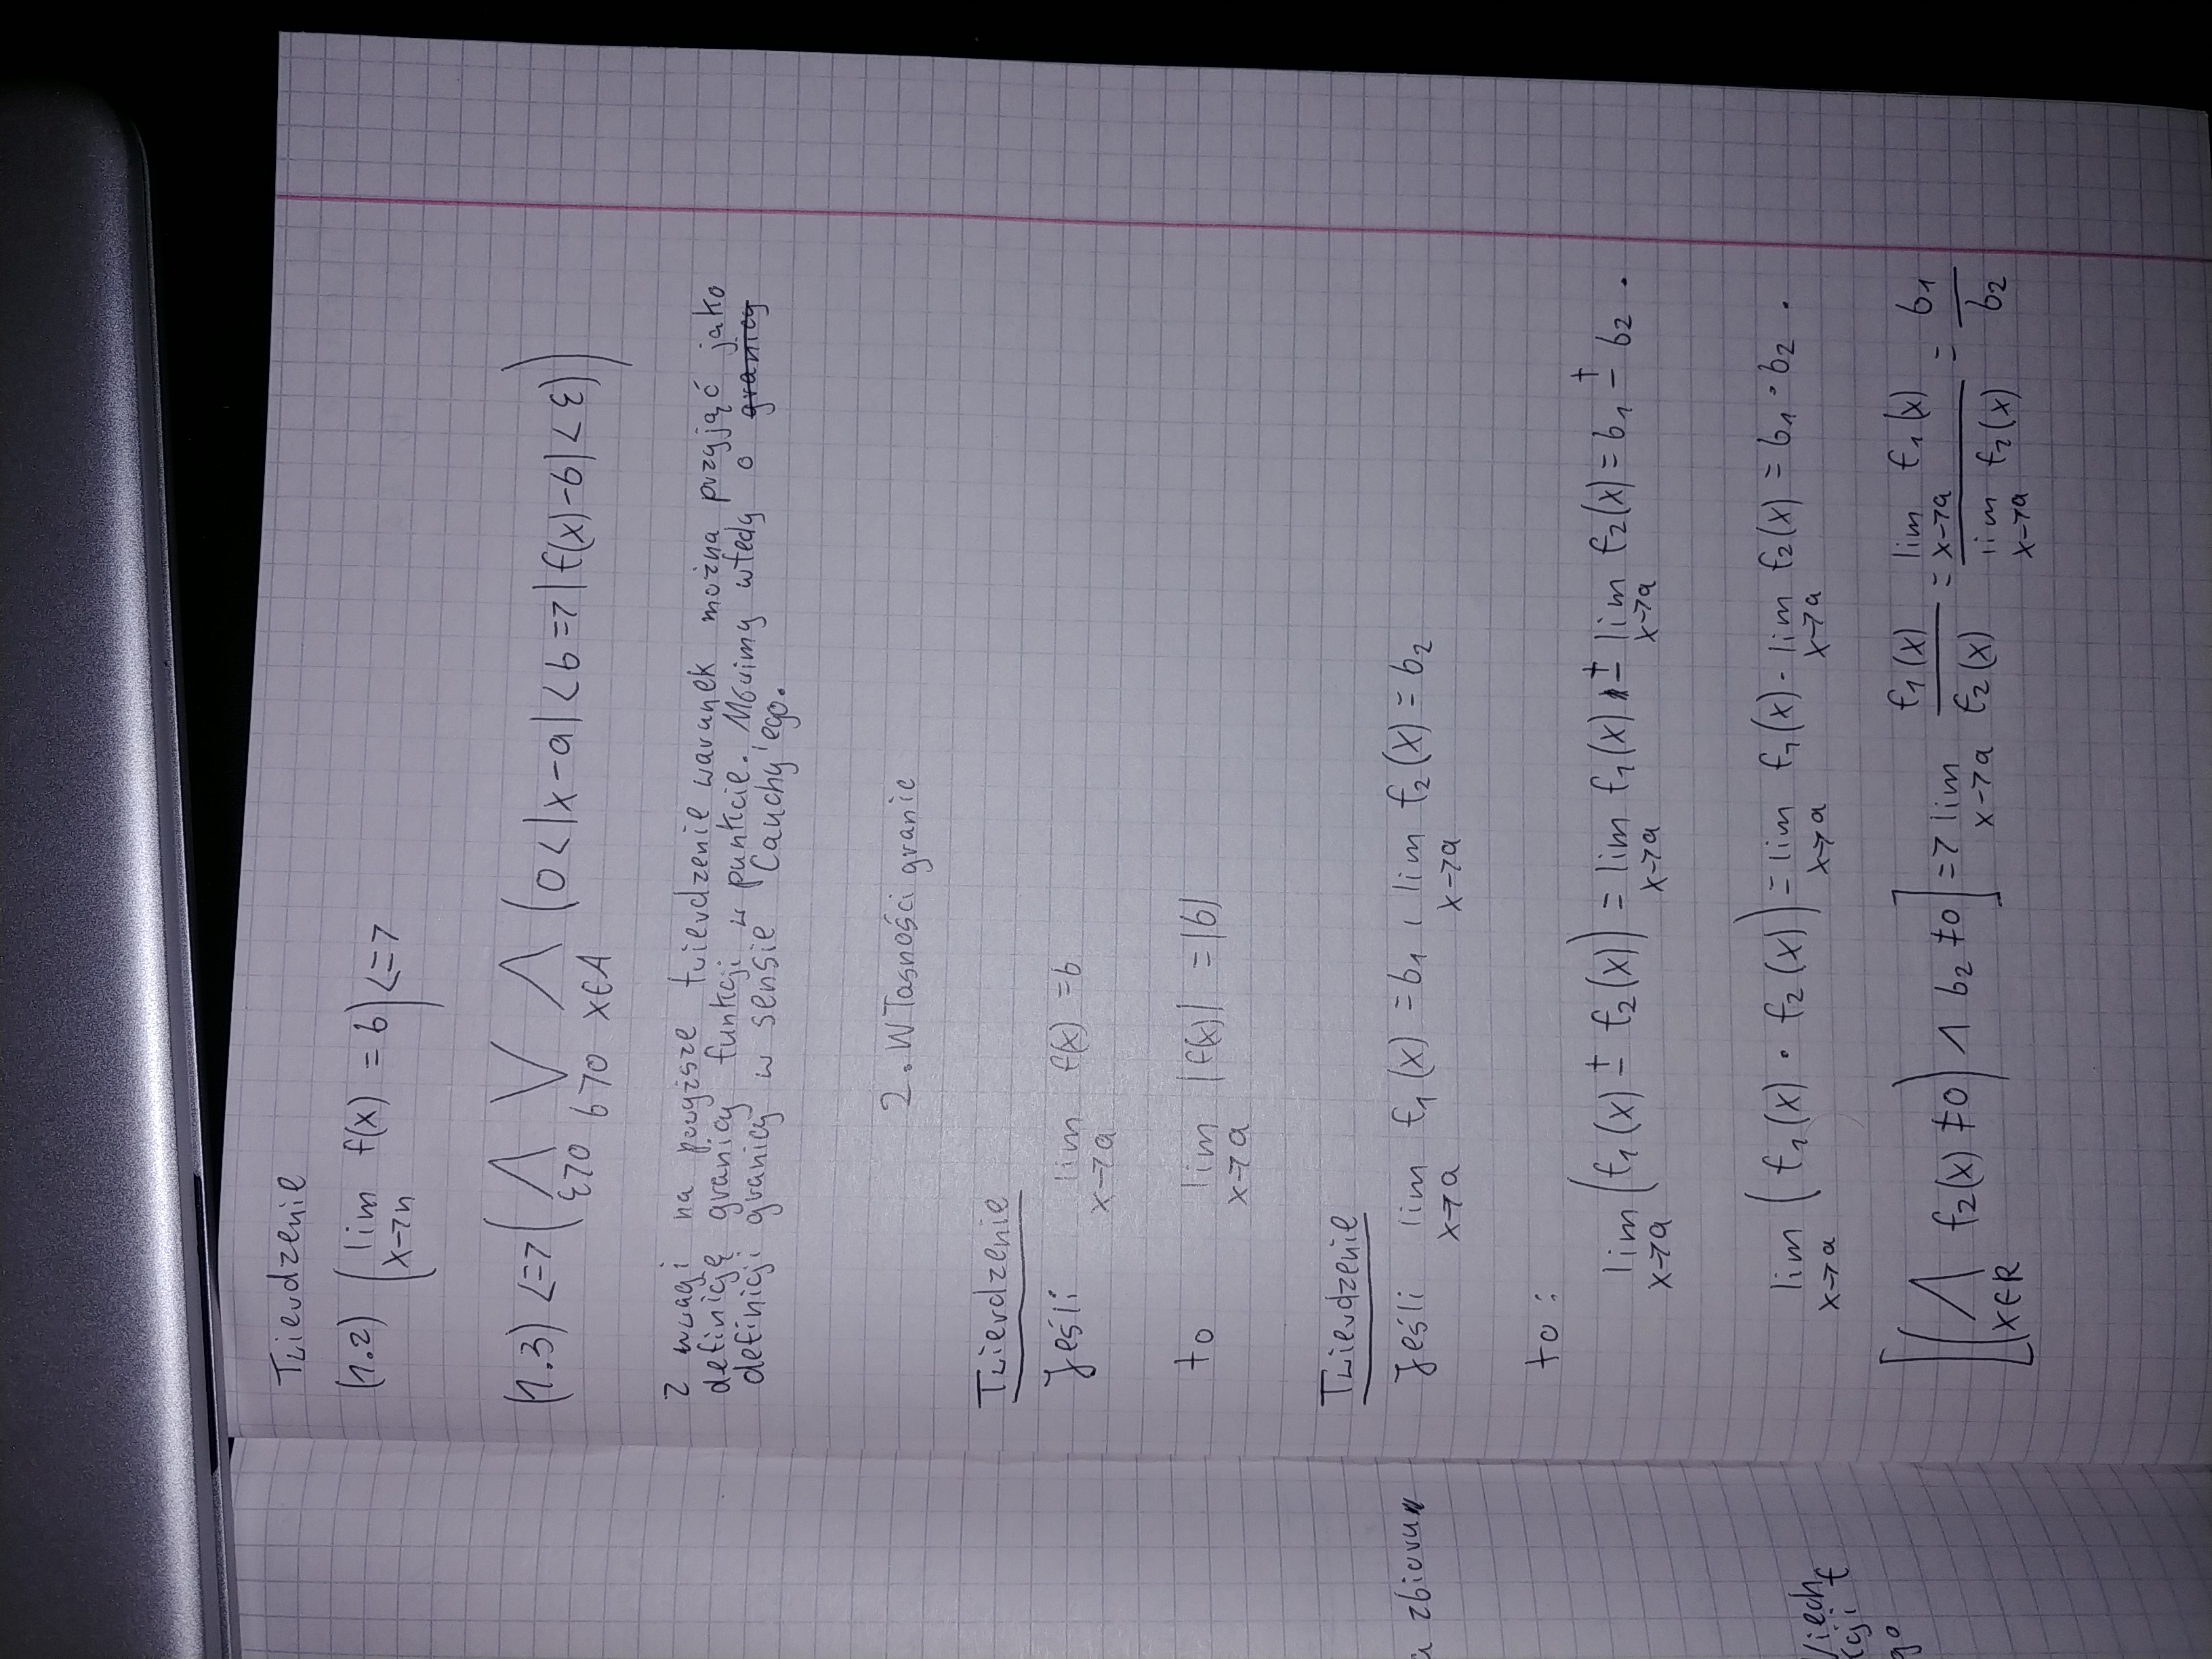 Twierdzenie
(1.2) (lim f(x) = b) <=>
x→n
(1.3) <=> (⋀ ⋁ ⋀ (0<|x-a|<δ => |f(x)-b|<ε))
ε>0 δ>0 x∈A
Z uwagi na powyższe twierdzenie warunek można przyjąć jako
definicję granicy funkcji w punkcie. Mówimy wtedy o granicy
definicji granicy w sensie Cauchy'ego.
2. Własności granic
Twierdzenie
Jeśli lim f(x) = b
x→a
to lim |f(x)| = |b|
x→a
Twierdzenie
Jeśli lim f₁(x) = b₁, lim f₂(x) = b₂
x→a x→a
to:
lim (f₁(x) ± f₂(x)) = lim f₁(x) ± lim f₂(x) = b₁ ± b₂.
x→a x→a x→a
lim (f₁(x) · f₂(x)) = lim f₁(x) · lim f₂(x) = b₁ · b₂.
x→a x→a x→a
[(⋀ f₂(x) ≠ 0) ∧ b₂ ≠ 0] => lim f₁(x)/f₂(x) = lim f₁(x) / lim f₂(x) = b₁/b₂
x∈R x→a x→a x→a
a zbioru
kcji f
go